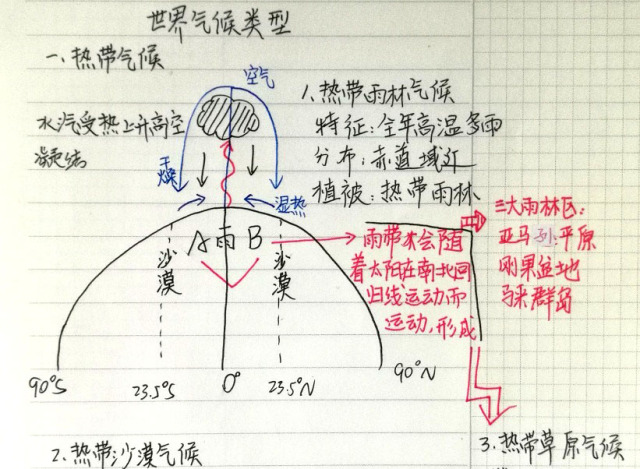 世界气候类型
一、热带气候
空气
水汽受热上升高空
凝结
干燥
湿热
1、热带雨林气候
特征：全年高温多雨
分布：赤道域近
植被：热带雨林
A 雨 B
沙漠
沙漠
90°S
23.5°S
0°
23.5°N
90°N
雨带会随
着太阳在南北回
归线运动而
运动，形成
三大雨林区：
亚马孙平原
刚果盆地
马来群岛
2、热带沙漠气候
3、热带草原气候